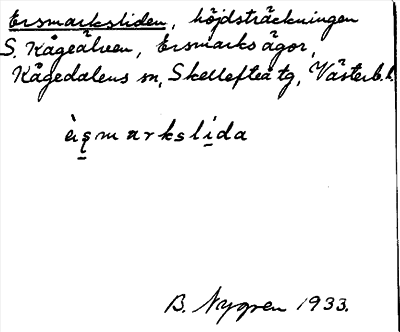 Ersmarksliden, höjdsträckningen
S. Kågeälven, Ersmarks ägor,
Kågedalens sn, Skellefteå tg, Västerb. l.
èi̭s̭markslí̭da
B. Nygren 1933.